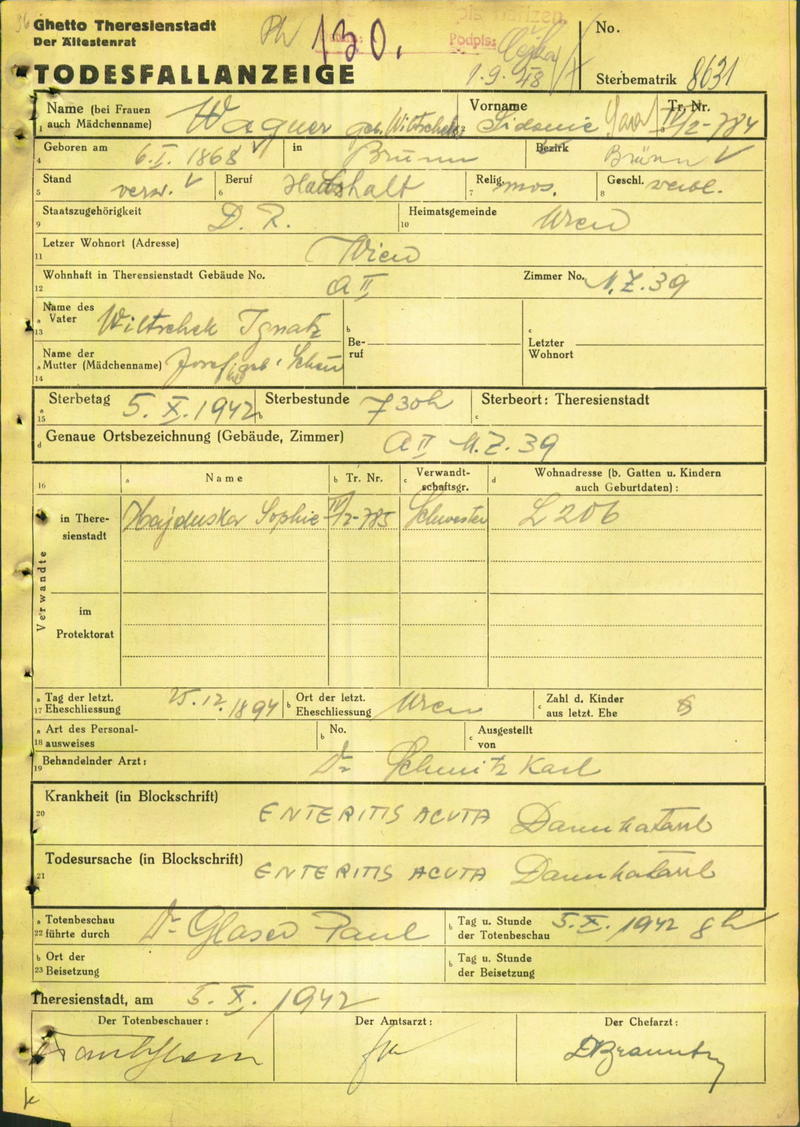 Ghetto Theresienstadt
Der Ältestenrat
TODESFALLANZEIGE
130.
Podpis:
1.9.48
No.
Sterbematrik 8631
Name (bei Frauen auch Mädchenname) Wagner geb. Wiltschek Vorname Sidonie Sara Tr. Nr. IV/2-784
Geboren am 6.I.1868 in Brünn Bezirk Brünn
Stand verw. Beruf Haushalt Relig. mos. Geschl. weibl.
Staatszugehörigkeit D.R. Heimatsgemeinde Wien
Letzer Wohnort (Adresse) Wien
Wohnhaft in Theresienstadt Gebäude No. A II Zimmer No. M.Z.39
Name des Vater Wiltschek Ignatz
Beruf
Letzter Wohnort
Name der Mutter (Mädchenname) Josefi geb.
Sterbetag 5.X.1942 Sterbestunde 7 30h Sterbeort: Theresienstadt
Genaue Ortsbezeichnung (Gebäude, Zimmer) A II M.Z.39
Name Tr. Nr. Verwandtschaftsgr. Wohnadresse (b. Gatten u. Kindern auch Geburtdaten):
Verwandte
in Theresienstadt Hajduska Sophie IV/2-785 Schwester L 206
im Protektorat
Tag der letzt. Eheschliessung 25.12.1894 Ort der letzt. Eheschliessung Wien Zahl d. Kinder aus letzt. Ehe
Art des Personalausweises No. Ausgestellt von
Behandelnder Arzt: Dr Schmitz Karl
Krankheit (in Blockschrift) ENTERITIS ACUTA Darmkatarrh
Todesursache (in Blockschrift) ENTERITIS ACUTA Darmkatarrh
Totenbeschau führte durch Dr Glaser Paul Tag u. Stunde der Totenbeschau 5.X.1942 8h
Ort der Beisetzung Tag u. Stunde der Beisetzung
Theresienstadt, am 5.X.1942
Der Totenbeschauer: Der Amtsarzt: Der Chefarzt: